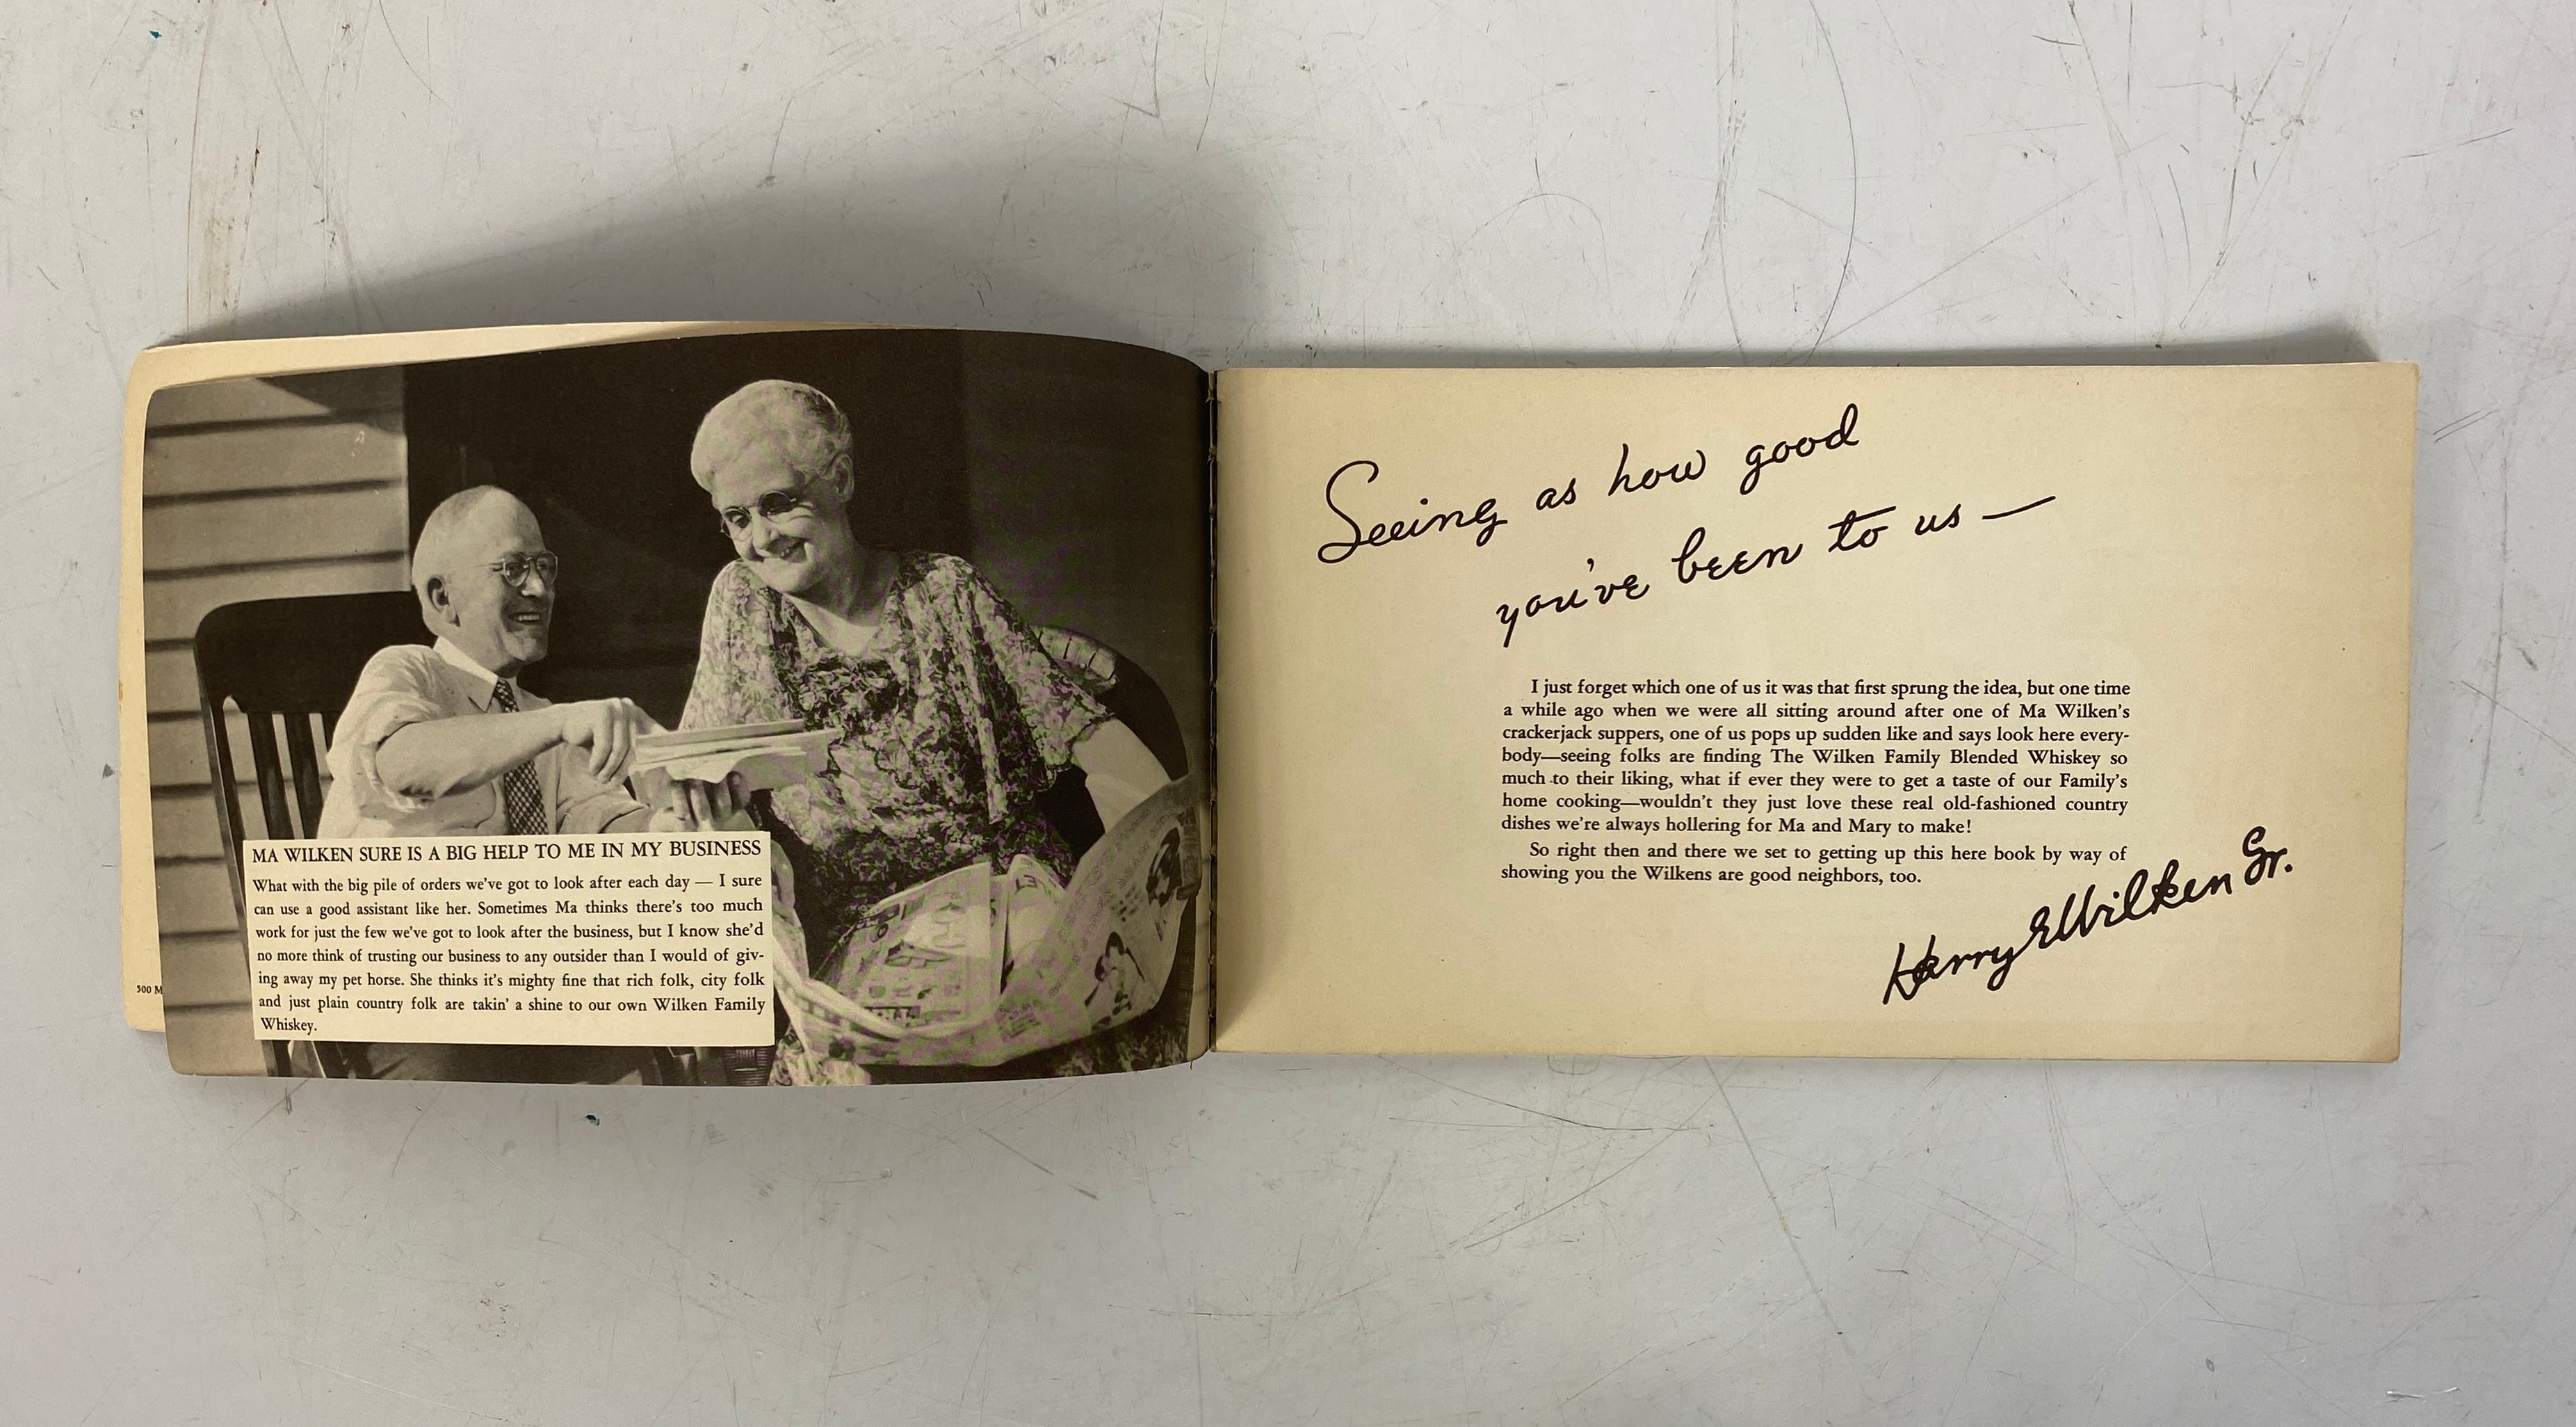 MA WILKEN SURE IS A BIG HELP TO ME IN MY BUSINESS
What with the big pile of orders we've got to look after each day — I sure
can use a good assistant like her. Sometimes Ma thinks there's too much
work for just the few we've got to look after the business, but I know she'd
no more think of trusting our business to any outsider than I would of giv-
ing away my pet horse. She thinks it's mighty fine that rich folk, city folk
and just plain country folk are takin' a shine to our own Wilken Family
Whiskey.
500 M
Seeing as how good
you've been to us —
I just forget which one of us it was that first sprung the idea, but one time
a while ago when we were all sitting around after one of Ma Wilken's
crackerjack suppers, one of us pops up sudden like and says look here every-
body—seeing folks are finding The Wilken Family Blended Whiskey so
much to their liking, what if ever they were to get a taste of our Family's
home cooking—wouldn't they just love these real old-fashioned country
dishes we're always hollering for Ma and Mary to make!
So right then and there we set to getting up this here book by way of
showing you the Wilkens are good neighbors, too.
Harry E Wilken Sr.